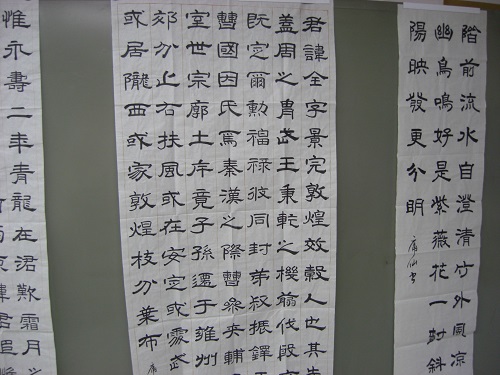 階前流水自澄清竹外風涼
幽鳥鳴好是紫薇花一樹斜
陽映發更分明
君諱全字景完敦煌效穀人也其先
蓋周之胄武王秉乾之機翦伐殷
既定爾勲福祿攸同封弟叔振鐸
曹國因氏焉秦漢之際曹參夾輔
室世宗廓土斥竟子孫遷于雍州
郊分止右扶風或在安定或處武
或居隴西或家敦煌枝分葉布
惟永壽二年青龍在涒歎霜月之